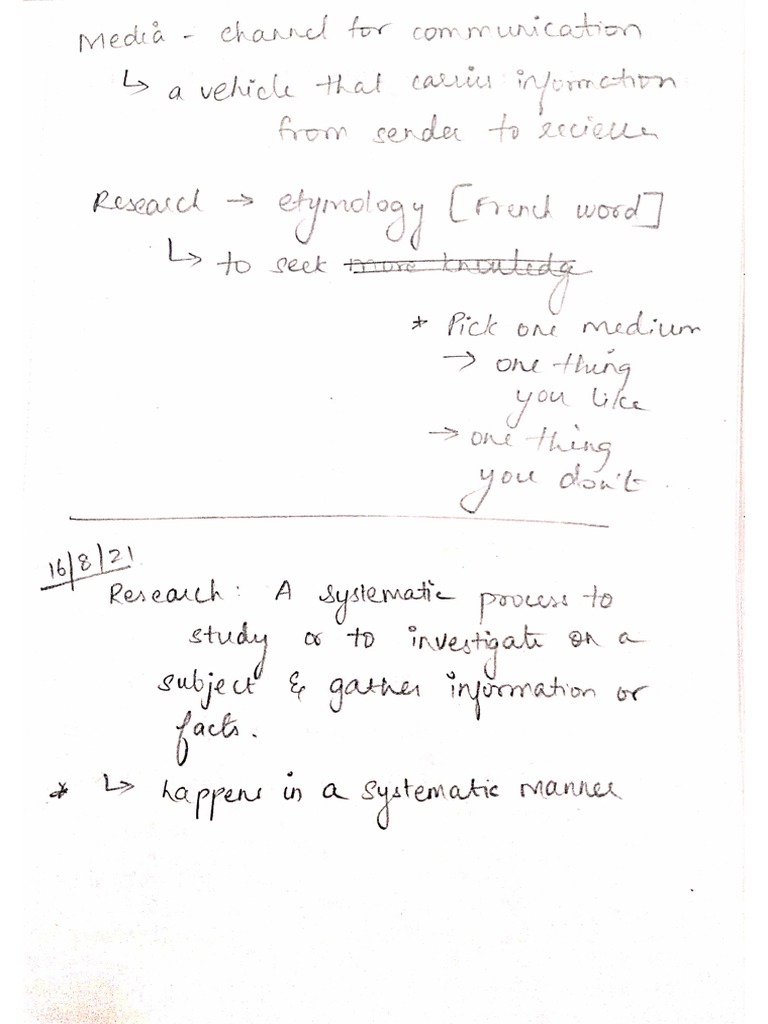 Media - channel for communication
↳ a vehicle that carries information
from sender to reciever
Research → etymology [French word]
↳ to seek more knowledge
* Pick one medium
→ one thing
you like
→ one thing
you don't.
16/8/21
Research: A systematic process to
study or to investigate on a
subject & gather information or
facts.
* ↳ happens in a systematic manner